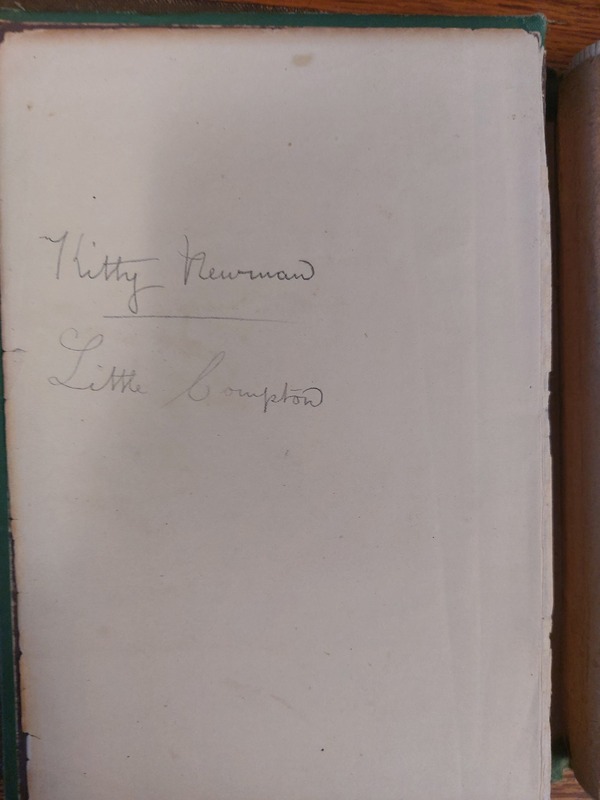 Kitty Newman
Little Compton